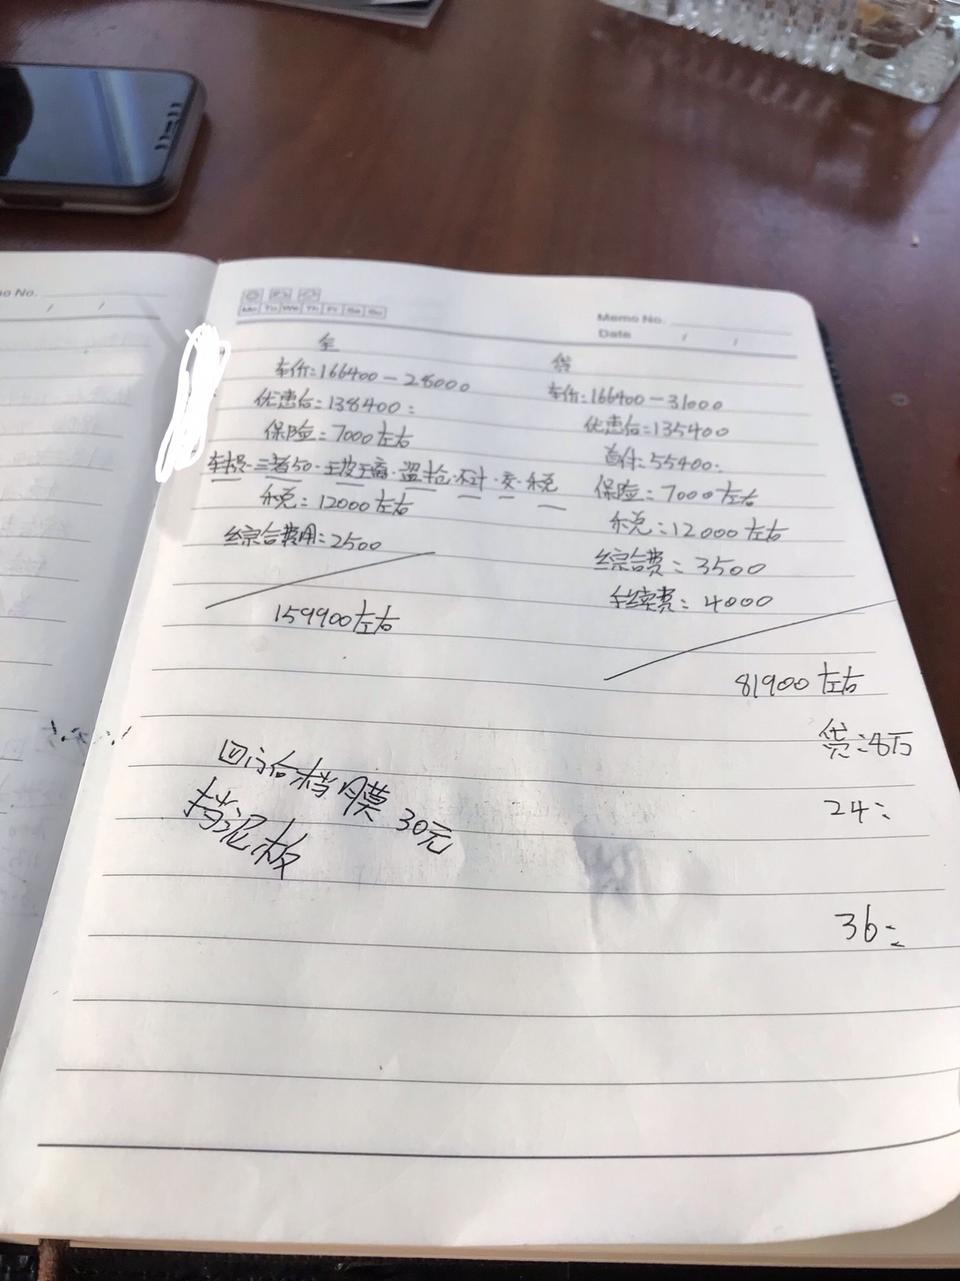 Mo Tu We Th Fr Sa Su
Memo No.
Date / /
o No.
/ /
全
车价:166400-28000
优惠后:138400:
保险:7000左右
车损·三者50·玻·盗抢·不计·交·税
税:12000左右
综合费用:2500
159900左右
贷
车价:166400-31000
优惠后:135400
首付:55400:
保险:7000左右
税:12000左右
综合费:3500
手续费:4000
81900左右
贷:8万
24:
36:
四门台档膜 30元
挡泥板